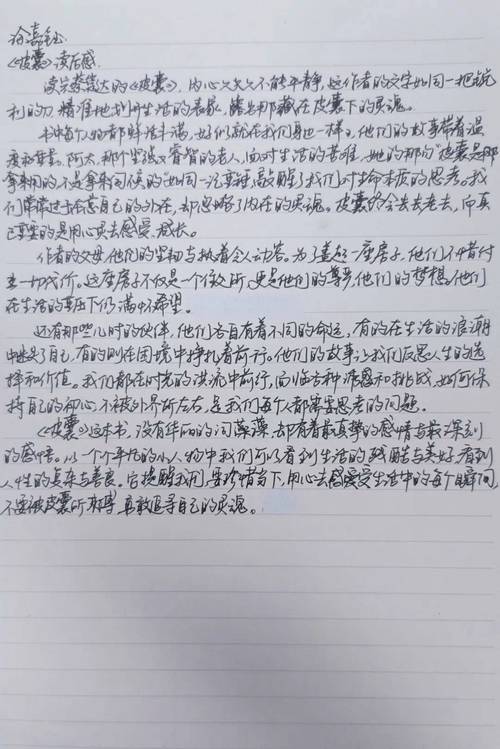 徐嘉钰
《皮囊》读后感.
读完蔡崇达的《皮囊》，内心久久不能平静，这作者的文字如同一把锐
利的刀 精准地划开生活的表象，露出那藏在皮囊下的灵魂。
书中每个人物都鲜活丰满，如们就在我们身边一样。他们的故事带着温
度和重量。阿太，那个坚强又睿智的老人，面对生活的苦难，她的那句"皮囊是那
拿来用的，不是拿来伺候的"如同一记重锤敲醒了我们对生命本质的思考。我
们常常过于在意自己的外在，却忽略了内在的灵魂。皮囊终会老去，而真
正重要的是用心灵去感受成长。
作者的父母他们的坚韧与执着令人动容。为了盖起一座房子，他们不惜付
出一切代价。这座房子不仅是一个住所，更是他们的尊严，他们的梦想，他们
在生活的重压下仍满怀希望。
还有那些儿时的伙伴，他们各自有着不同的命运，有的在生活的浪潮
中迷失了自己，有的则在困境中挣扎着前行。他们的故事让我们反思人生的选
择和价值。我们都在时光的洪流中前行，面临各种诱惑和挑战，如何保
持自己的初心，不被外界所左右，是我们每个人都需要思考的问题.
《皮囊》这本书，没有华丽的词藻，却有着最真挚的感情与最深刻
的感悟。从一个个平凡的小人物中我们可以看到生活的残酷与美好，看到
人性的复杂与善良。它提醒我们，要珍惜当下，用心去感受生活中的每个瞬间，
不要被皮囊所束缚，勇敢追寻自己的灵魂。